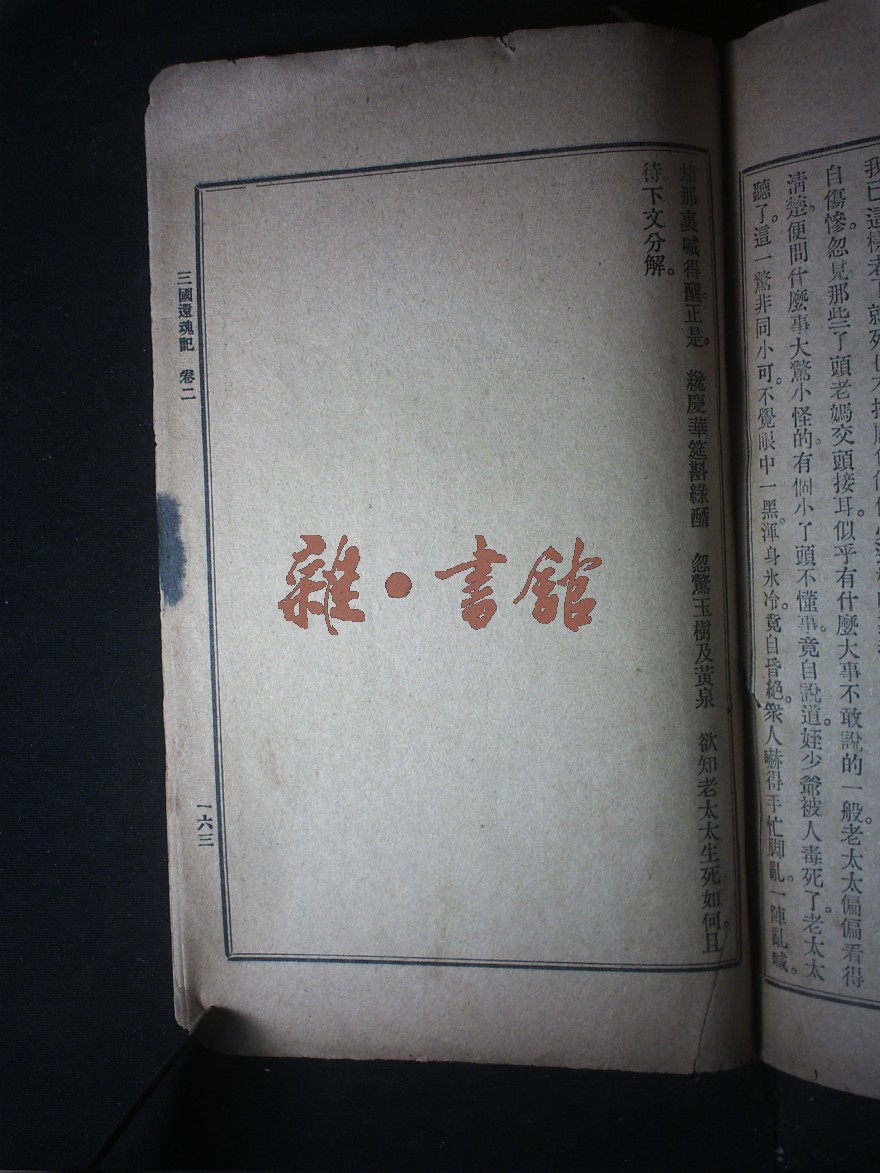 我已這樣老了就死也不
自傷慘。忽見那些丫頭老媽交頭接耳。似乎有什麼大事不敢說的一般。老太太偏偏看得
清楚。便問什麼事大驚小怪的。有個小丫頭不懂事。竟自說道。姪少爺被人毒死了。老太太
聽了。這一驚非同小可。不覺眼中一黑。渾身氷冷。竟自昏絕。衆人嚇得手忙脚亂。一陣亂喊。
那裏喊得醒。正是。 纔慶華筵斟綠醑 忽驚玉樹及黃泉 欲知老太太生死如何。且
待下文分解。
三國還魂記 卷二
一六三
雜·書館